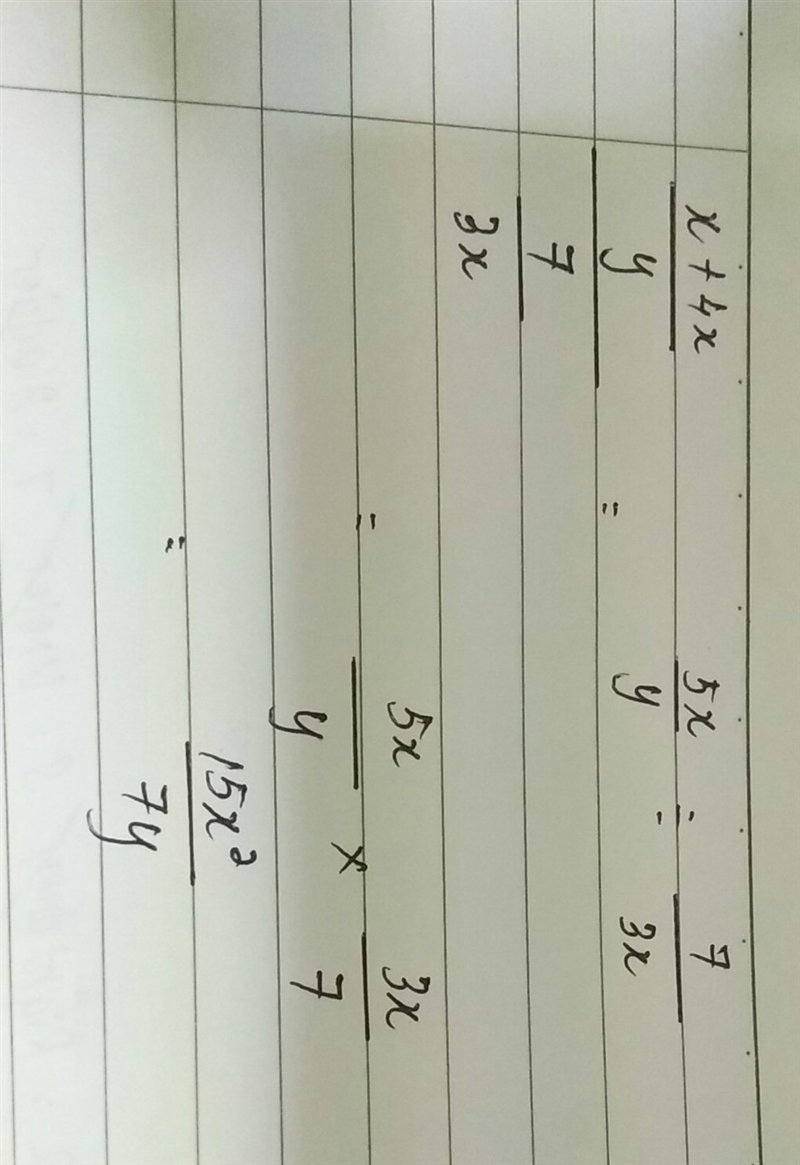 \frac{\frac{x+4x}{y}}{\frac{7}{3x}} = \frac{5x}{y} ÷ \frac{7}{3x}
= \frac{5x}{y} × \frac{3x}{7}
= \frac{15x²}{7y}